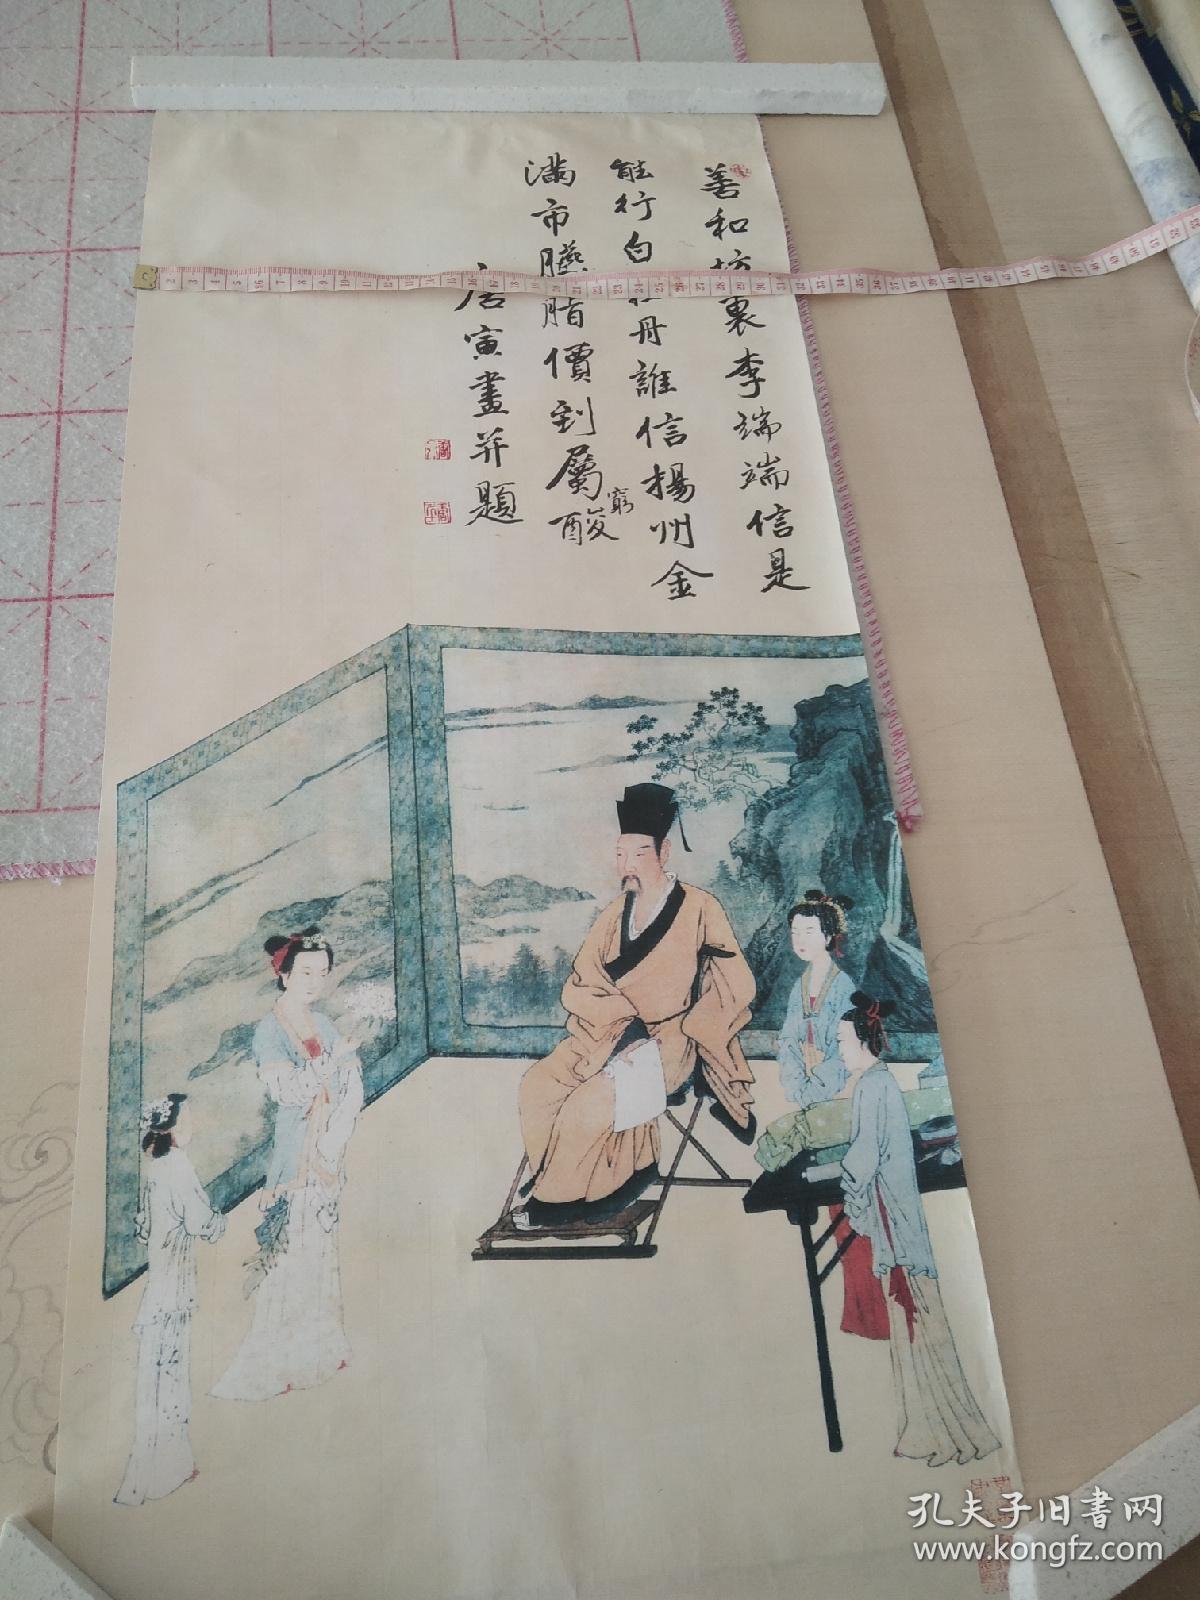 善和坊裏李端端信是
能行白牡丹誰信揚州金
滿市臙脂價到屬酸
窮
唐寅畫并題
孔夫子旧书网
www.kongfz.com